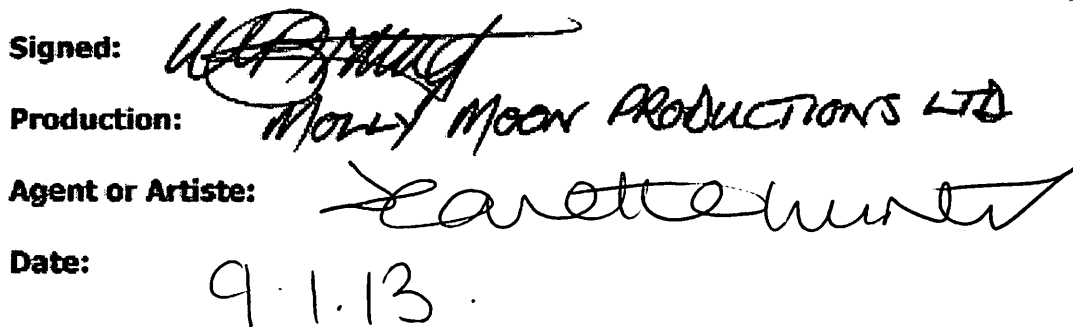 Signed:
Production: MOLLY MOON PRODUCTIONS LTD
Agent or Artiste:
Date: 9.1.13.